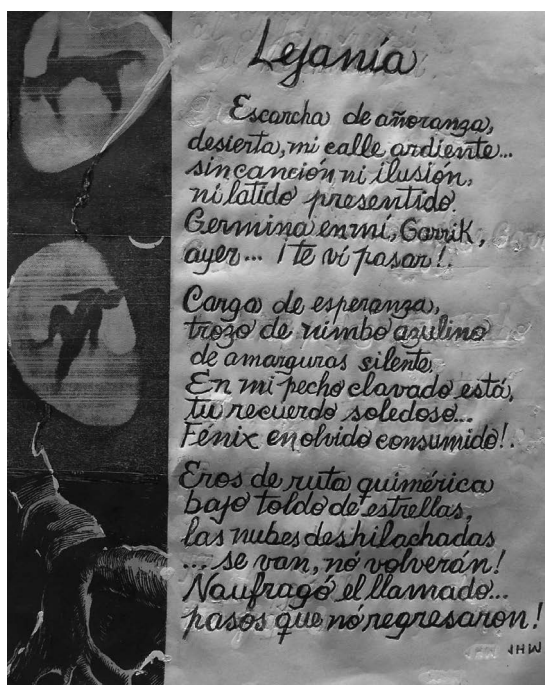 Lejanía
Escarcha de añoranza,
desierta, mi calle ardiente...
sin canción ni ilusión,
ni latido presentido
Germina en mí, Garrik,
ayer... ¡te vi pasar!.
Carga de esperanza,
trozo de nimbo azulino
de amarguras silente,
En mi pecho clavado está,
tu recuerdo soledoso...
Fénix en olvido consumido!.
Eros de ruta quimérica
bajo toldo de estrellas,
las nubes deshilachadas
... se van, nó volverán!
Naufragó el llamado...
pasos que nó regresaron!
JHW